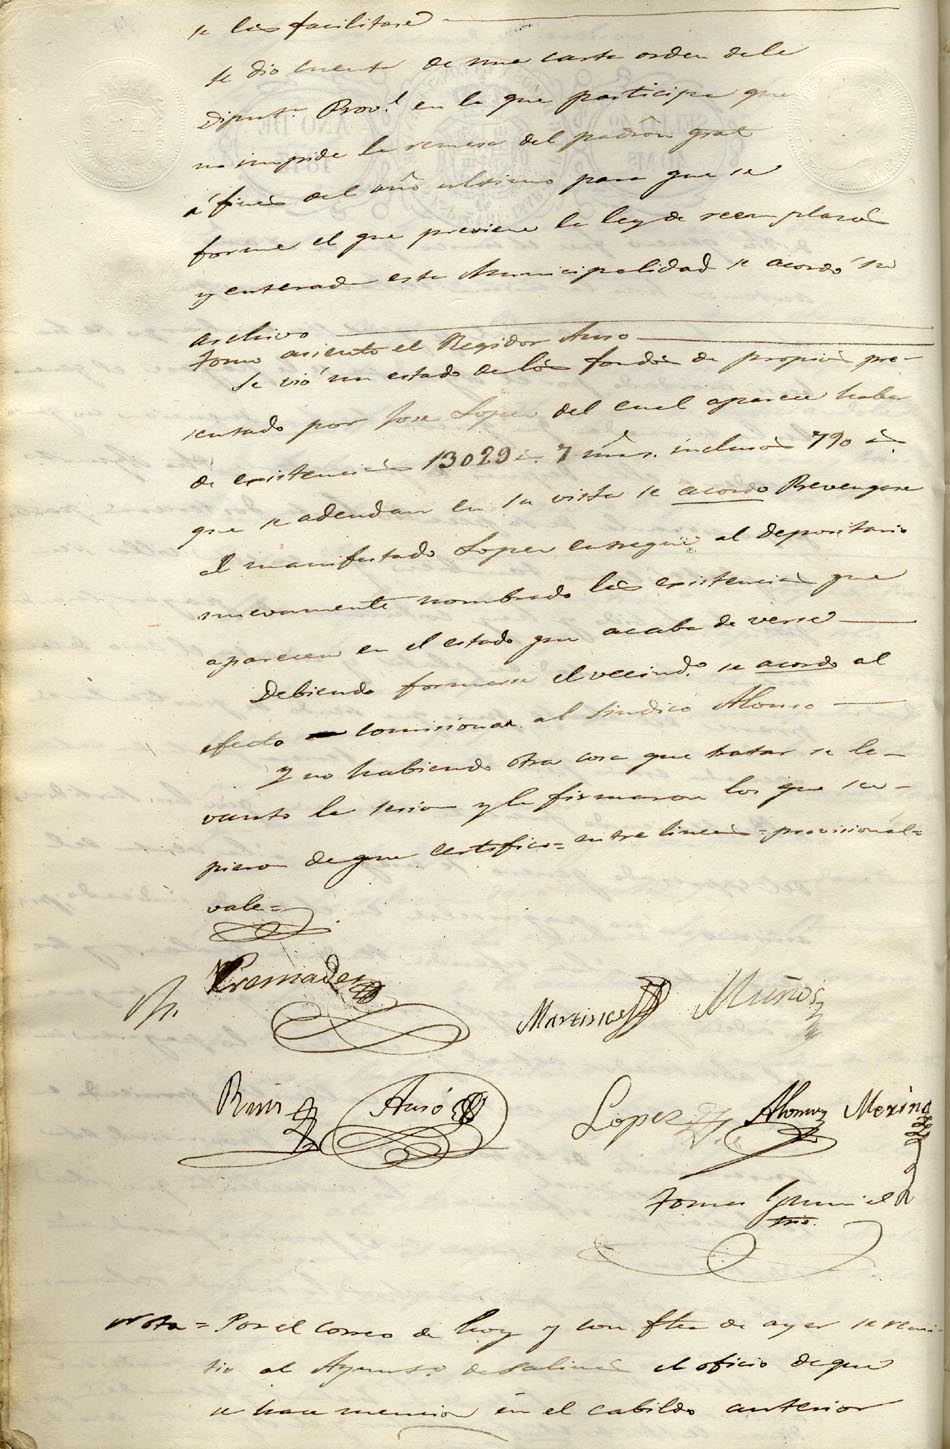 se les facilitase
Se dio cuenta de una carta orden de la
Diput.n Prov.l en la que participa que
no impide la remesa del padron gral
á fines del año ultimo para que se
forme el que previene la ley de reemplazos
y enterada esta Municipalidad se acordó su
archivo
Tomo asiento el Regidor Auso
Se vió un estado de los fondos de propios pre-
sentado por Jose Lopez del cual aparece haber
de existencias 13029 7 mrs. inclusos 790
que se adeudan en su vista se acordo Prevengase
al manifestado Lopez entregue al depositario
nuevamente nombrado las existencias que
aparecen en el estado que acaba de verse
Debiendo formarse el vecind.o se acordo al
efecto comisionar al sindico Alonso
Y no habiendo otra cosa que tratar se le-
vanto la sesion y la firmaron los que su-
pieron de que certifico = entre lineas = provisional =
vale =
Cremades
Martinez Muñoz
Ruiz Ausó Lopez Alonso Merino
Tomas
srio.
Nota = Por el correo de hoy y con fha de ayer se remi-
tio al Ayunt.o de Salinas el oficio de que
se hace mencion en el cabildo anterior